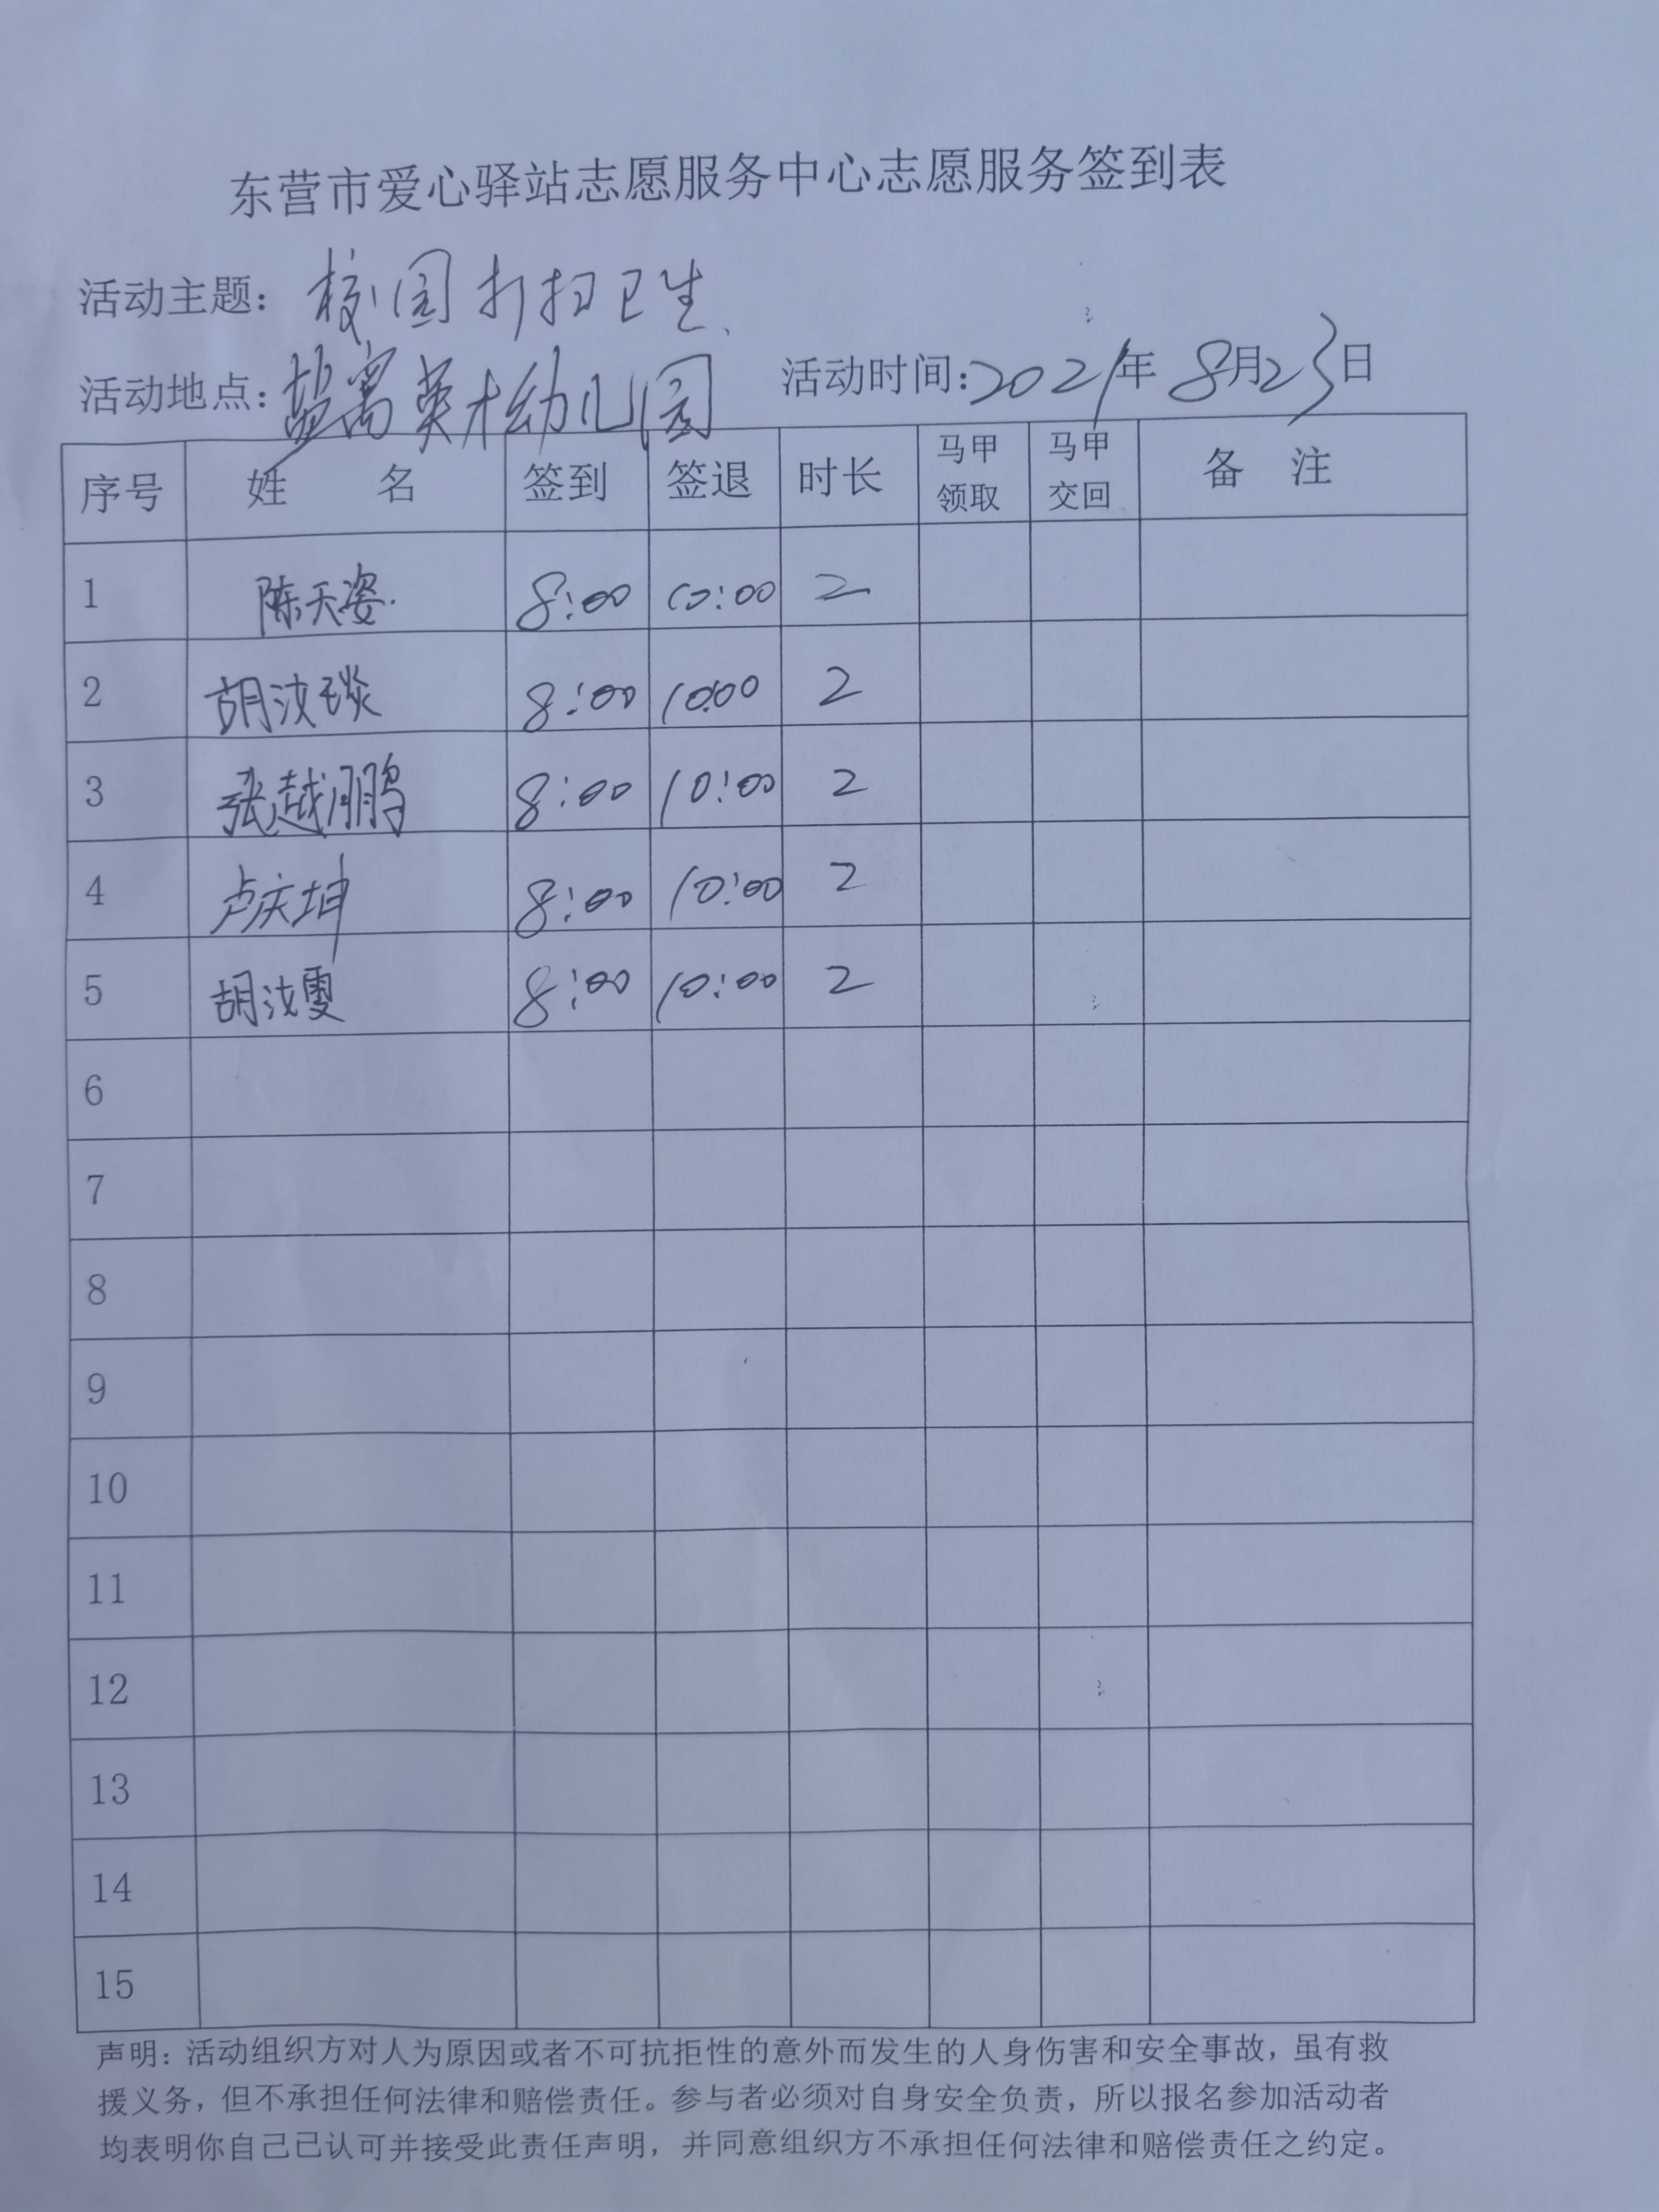 东营市爱心驿站志愿服务中心志愿服务签到表
活动主题：校园打扫卫生
活动地点：盐窝英才幼儿园 活动时间：2021年8月23日
序号 姓名 签到 签退 时长 马甲领取 马甲交回 备注
1 陈天姿 8:00 10:00 2
2 胡汶琰 8:00 10:00 2
3 张越鹏 8:00 10:00 2
4 卢庆坤 8:00 10:00 2
5 胡汶雯 8:00 10:00 2
6
7
8
9
10
11
12
13
14
15
声明：活动组织方对人为原因或者不可抗拒性的意外而发生的人身伤害和安全事故，虽有救
援义务，但不承担任何法律和赔偿责任。参与者必须对自身安全负责，所以报名参加活动者
均表明你自己已认可并接受此责任声明，并同意组织方不承担任何法律和赔偿责任之约定。